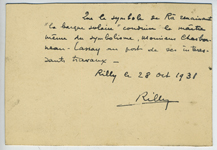 Que le symbole de Râ conduisant
"la barque solaire" conduise le maître
même du symbolisme, Monsieur Charbon-
neau-Lassay au port de ses intéres-
sants travaux —
Rilly le 28 oct 1938
Rilly